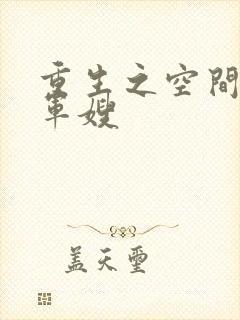 重生之空間
軍嫂
蓋天璽